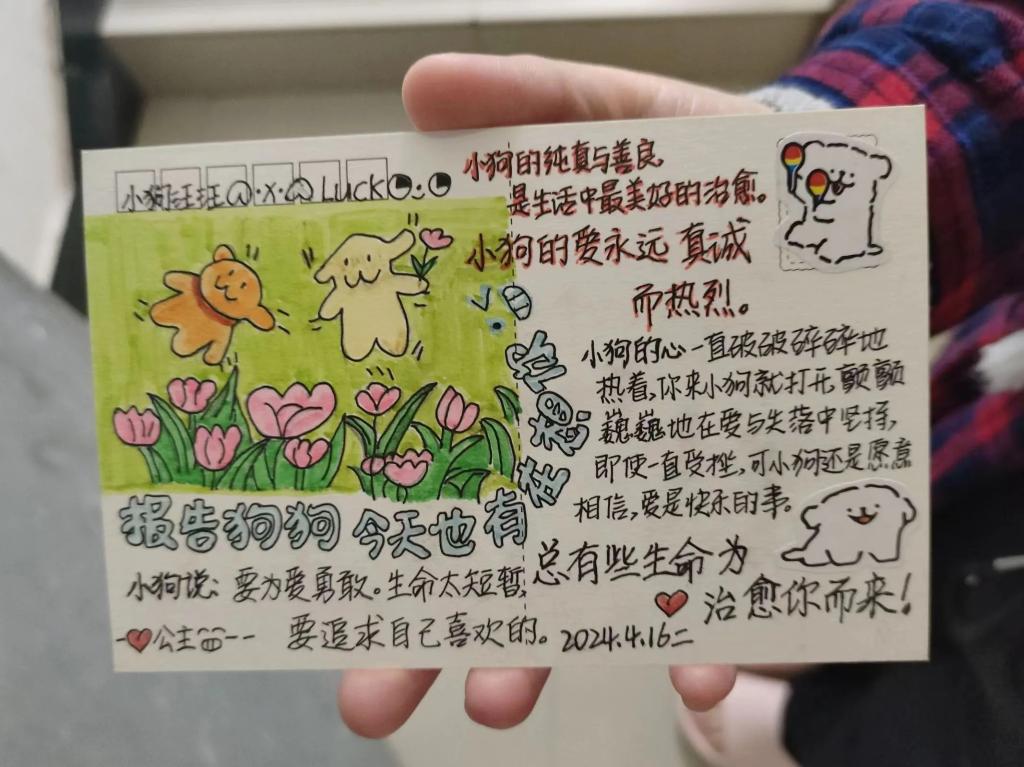 小狗汪班 LUCK
小狗的纯真与善良
是生活中最美好的治愈。
小狗的爱永远 真诚
而热烈。
小狗的心一直破破碎碎地
热着,你来小狗就打开,颤颤
巍巍地在爱与失落中坚持,
即使一直受挫,可小狗还是愿意
相信,爱是快乐的事。
报告狗狗 今天也有在想你
小狗说: 要为爱勇敢。生命太短暂,
要追求自己喜欢的。
公主
总有些生命为
治愈你而来!
2024.4.16二